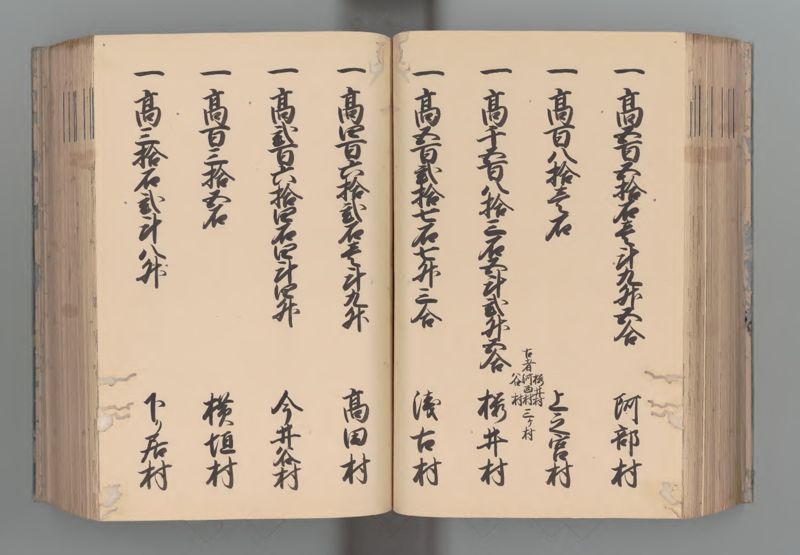 一高五百五拾石壱斗九升五合 阿部村
一高百八拾壱石 上之宮村
一高千五百八拾三石六斗弐升五合 桜井村
古者 桜井村 河西村 谷村 三ヶ村
一高五百弐拾七石七升三合 浅古村
一高四百六拾弐石壱斗九升 高田村
一高弐百六拾四石四斗四升 今井谷村
一高百三拾五石 横垣村
一高三拾石弐斗八升 下り居村